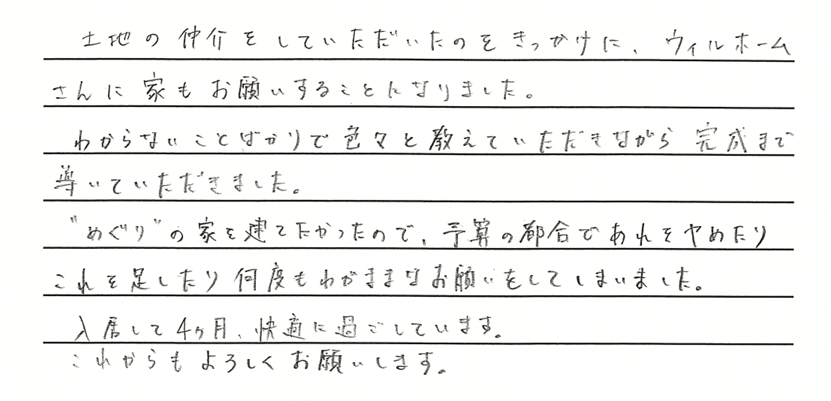 土地の仲介をしていただいたのをきっかけに、ウィルホーム
さんに家もお願いすることになりました。
わからないことばかりで色々と教えていただきながら完成まで
導いていただきました。
"めぐり"の家を建てたかったので、予算の都合であれをヤめたり
これを足したり何度もわがままなお願いをしてしまいました。
入居して4ヶ月、快適に過ごしています。
これからもよろしくお願いします。